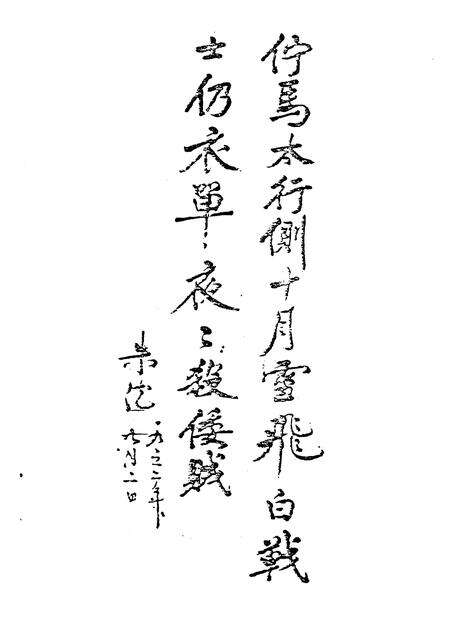 佇馬太行側十月雪飛白戰
士仍衣單夜々殺倭賊
朱德
一九五二年
月二日